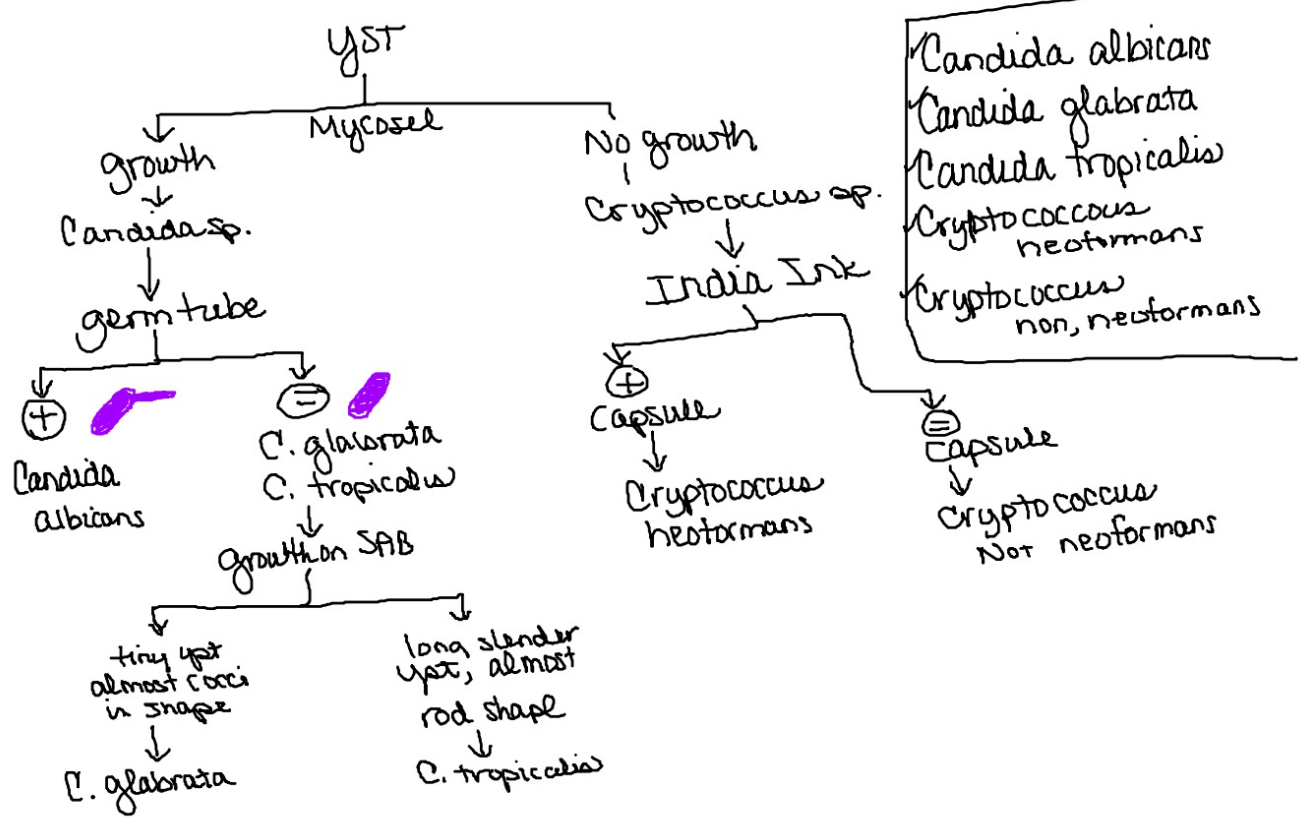 YST
Mycosel
growth
Candida sp.
germ tube
+
Candida
albicans
=
C. glabrata
C. tropicalis
growth on SAB
tiny yst
almost cocci
in shape
C. glabrata
long slender
yst, almost
rod shape
C. tropicalis
No growth
Cryptococcus sp.
India Ink
+
Capsule
Cryptococcus
neoformans
=
Capsule
Cryptococcus
Not neoformans
✓Candida albicans
✓Candida glabrata
✓Candida tropicalis
✓Cryptococcous
neoformans
✓Cryptococcus
non, neoformans